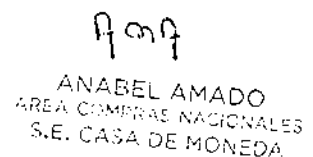 ANABEL AMADO
AREA COMPRAS NACIONALES
S.E. CASA DE MONEDA